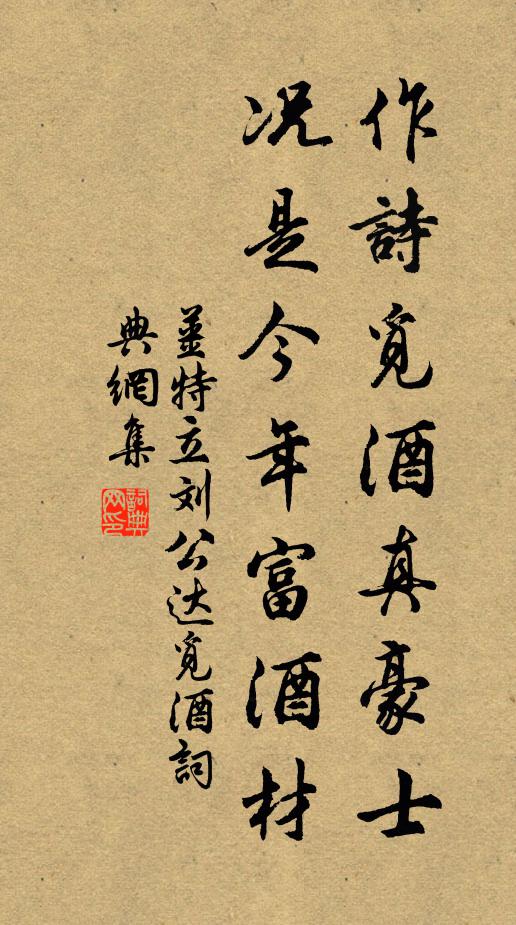 作詩覓酒真豪士
况是今年富酒材
薑特立刘公达覓酒詞
典網集
詞典網印